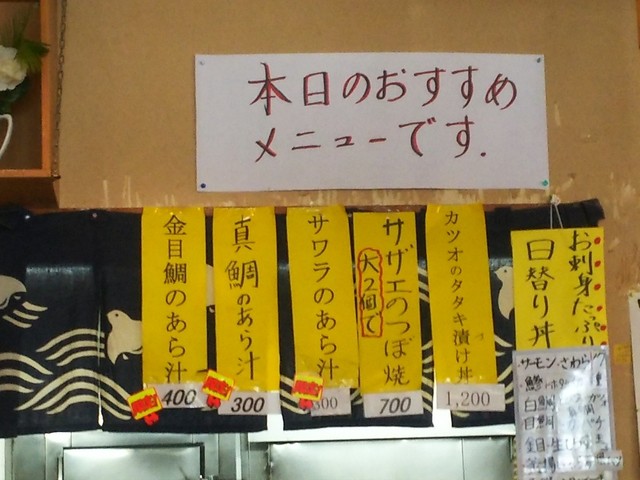 本日のおすすめ
メニューです.
お刺身たっぷり
日替り丼
カツオのタタキ漬け丼
1,200
サザエのつぼ焼
大2個で
700
サワラのあら汁
300
真鯛のあら汁
300
金目鯛のあら汁
400
サーモン,さわら